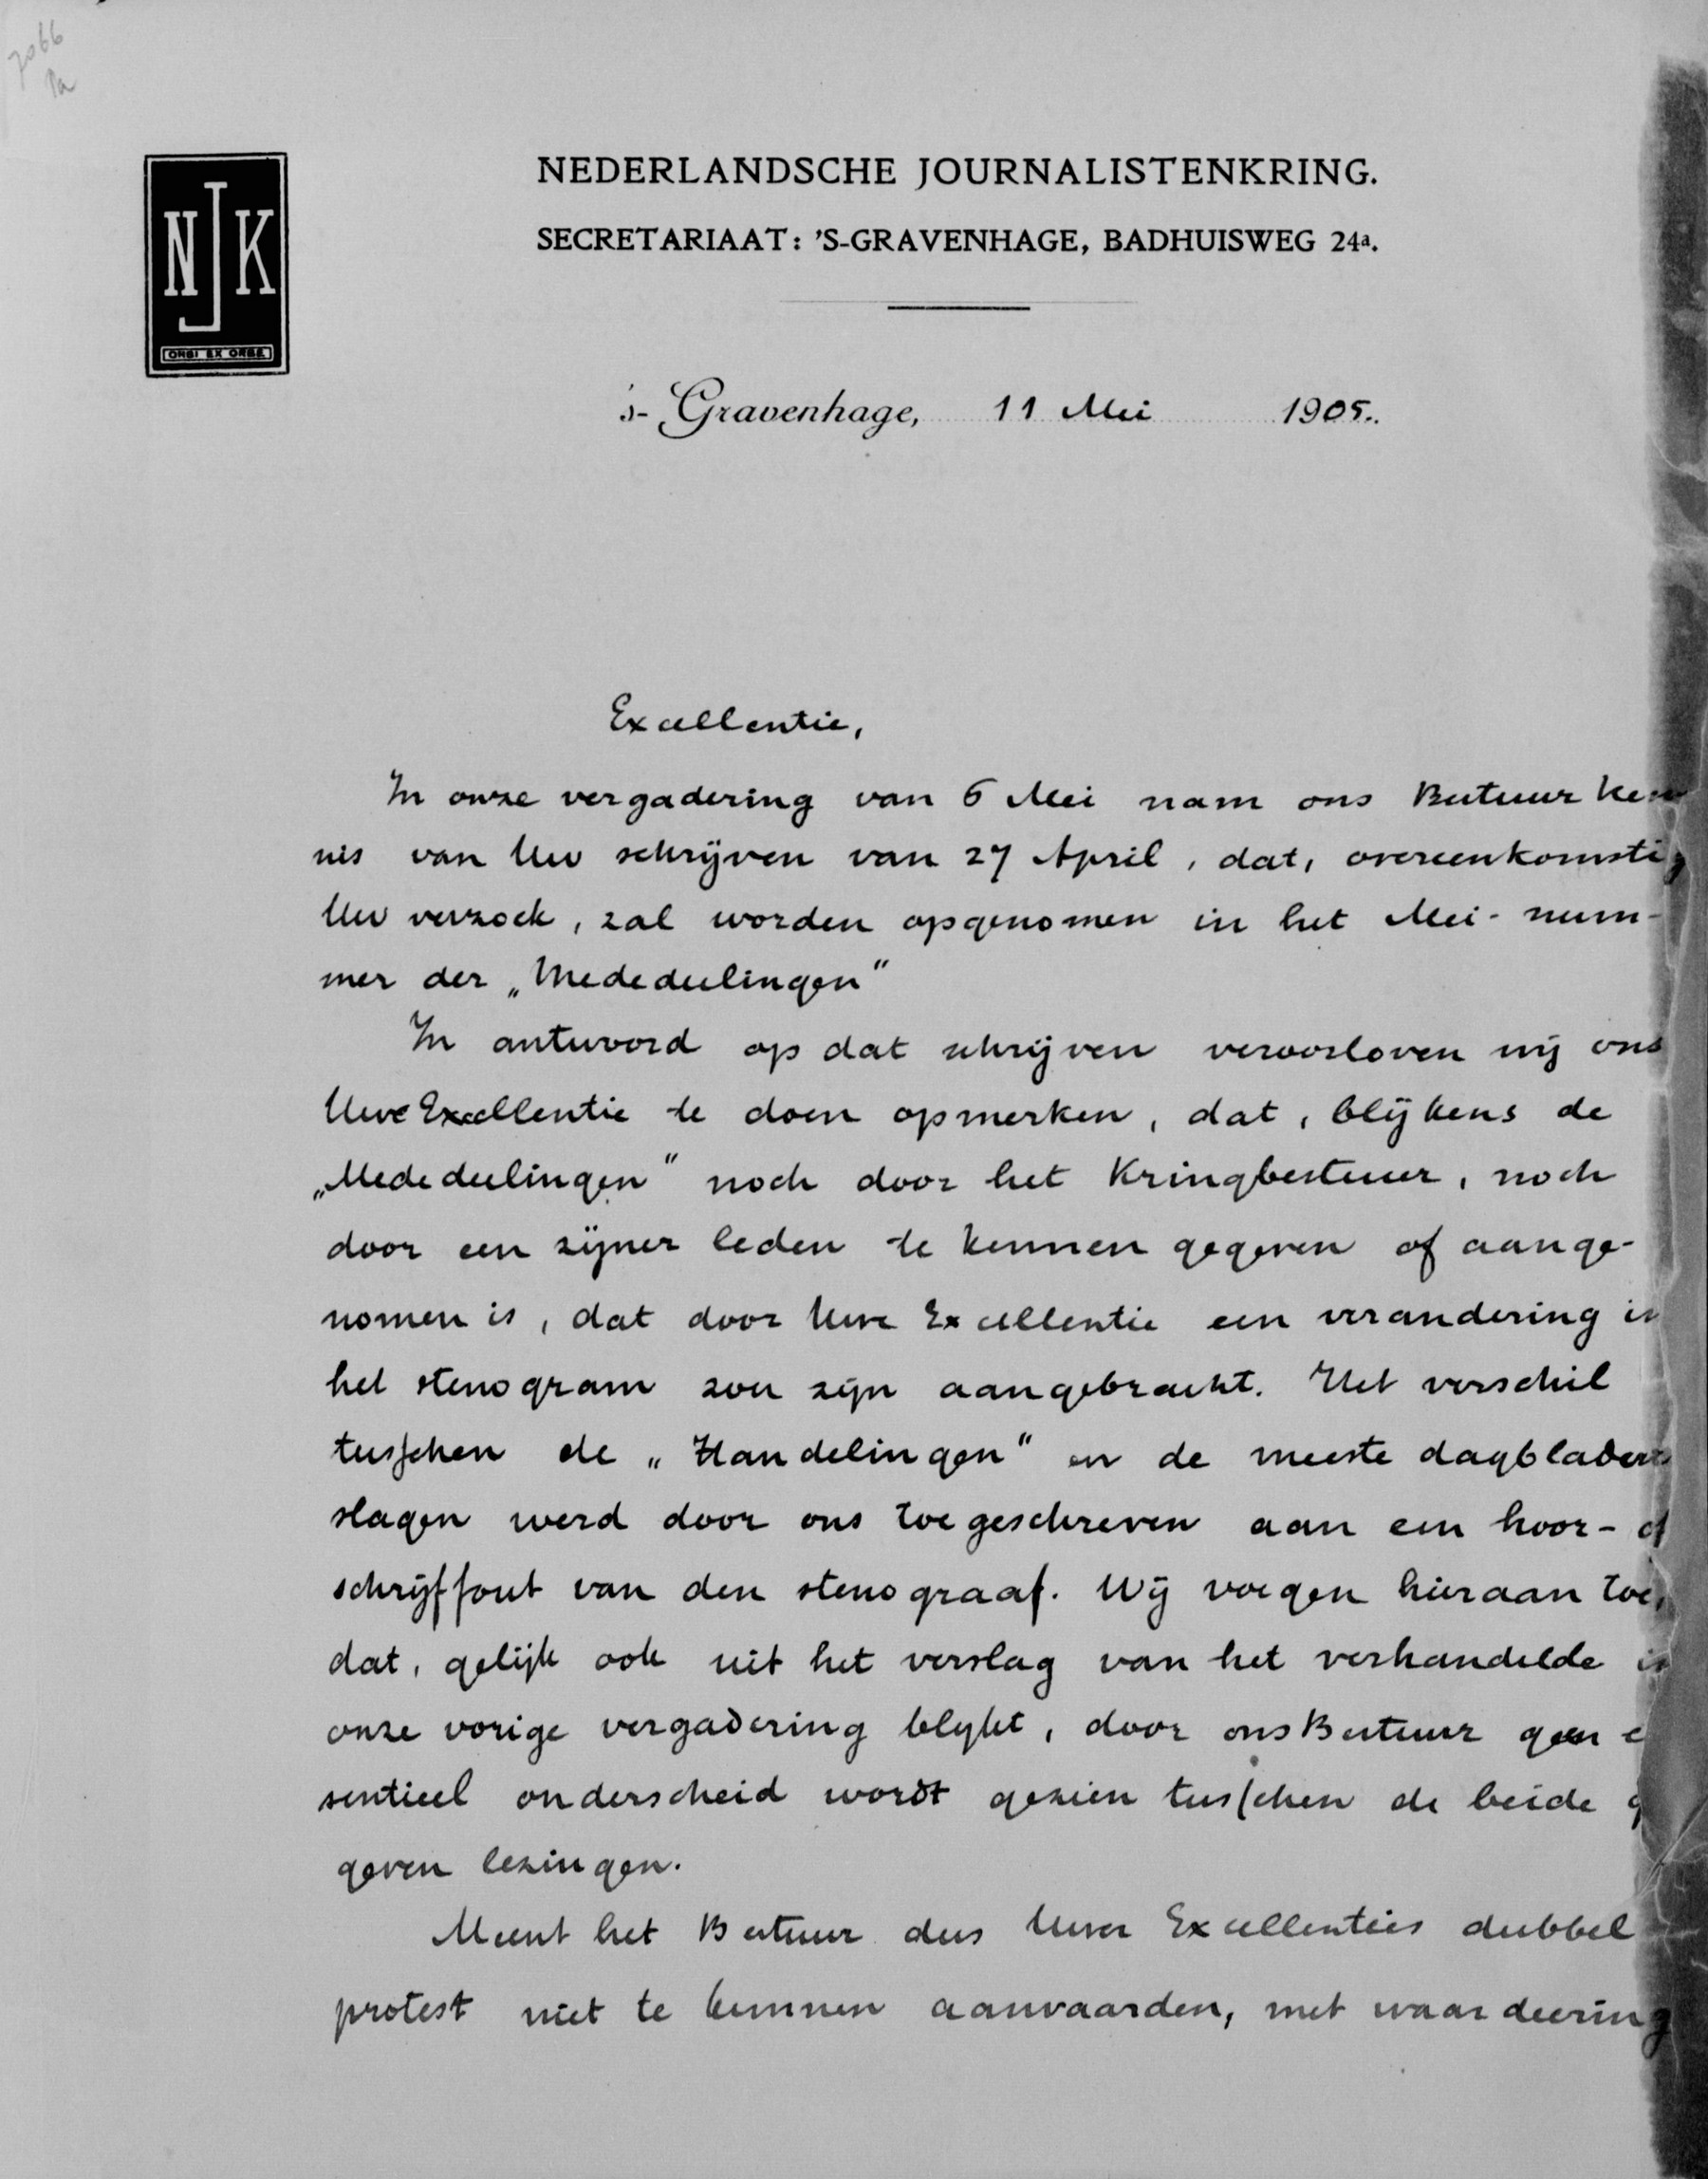 7066
Pa
NJK
ORBI EX ORBE
NEDERLANDSCHE JOURNALISTENKRING.
SECRETARIAAT: 'S-GRAVENHAGE, BADHUISWEG 24a.
's-Gravenhage, 11 Mei 1905.
Excellentie,
In onze vergadering van 6 Mei nam ons Bestuur ken
nis van Uw schrijven van 27 April, dat, overeenkomstig
Uw verzoek, zal worden opgenomen in het Mei-num-
mer der „Mededeelingen"
In antwoord op dat schrijven veroorloven wij ons
Uwe Excellentie te doen opmerken, dat, blijkens de
„Mededeelingen" noch door het Kringbestuur, noch
door een zijner leden te kennen gegeven of aange-
nomen is, dat door Uwe Excellentie een verandering in
het stenogram zou zijn aangebracht. Het verschil
tusschen de „Handelingen" en de meeste dagbladver
slagen werd door ons toegeschreven aan een hoor- of
schrijffout van den stenograaf. Wij voegen hieraan toe,
dat, gelijk ook uit het verslag van het verhandelde in
onze vorige vergadering blykt, door ons Bestuur geen e
sentieel onderscheid wordt gezien tusschen de beide g
geven lezingen.
Meent het Bestuur dus Uwer Excellenties dubbel
protest niet te kunnen aanvaarden, met waardeering